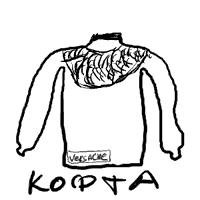 VERSACHE
КОФТА